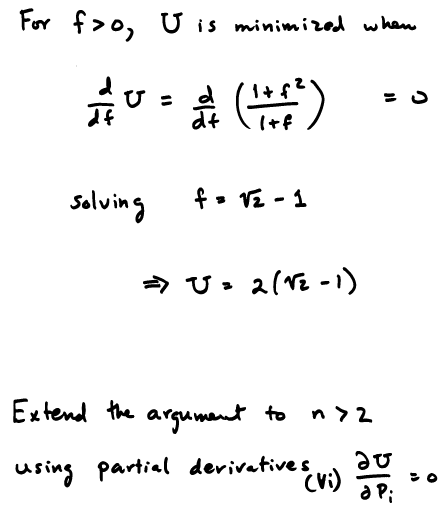 For f>0, U is minimized when
d/df U = d/df ( (1+f²)/(1+f) ) = 0
solving f = √2 - 1
⇒ U = 2(√2 - 1)
Extend the argument to n > 2
using partial derivatives (∀i) ∂U/∂Pᵢ = 0